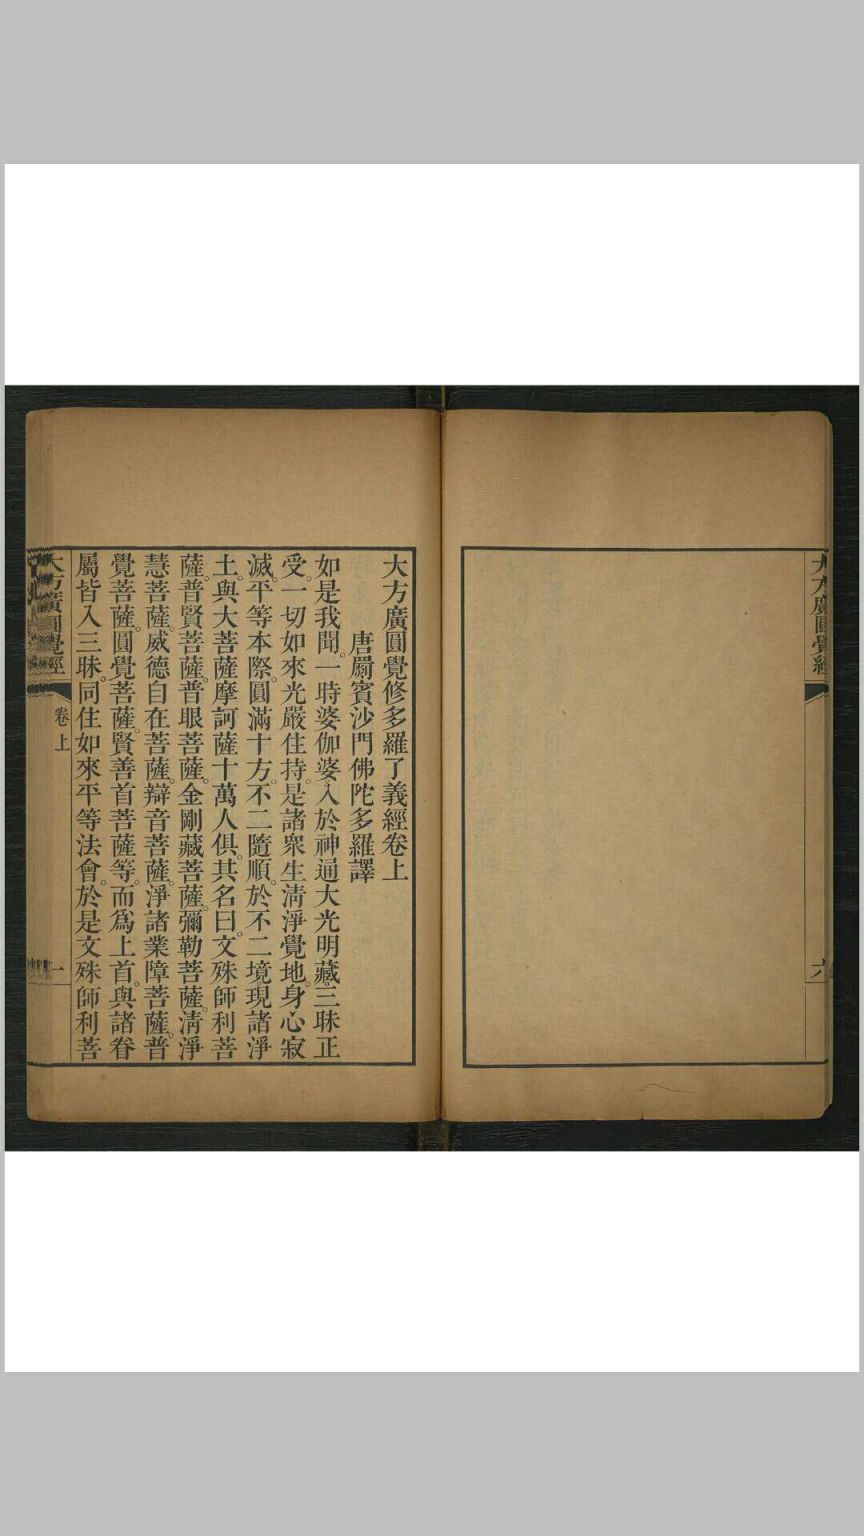 大方廣圓覺經
六
大方廣圓覺修多羅了義經卷上
唐罽賓沙門佛陀多羅譯
如是我聞。一時婆伽婆。入於神通大光明藏。三昧正
受。一切如來光嚴住持。是諸衆生清淨覺地。身心寂
滅。平等本際。圓滿十方。不二隨順。於不二境。現諸淨
土。與大菩薩摩訶薩十萬人俱。其名曰。文殊師利菩
薩。普賢菩薩。普眼菩薩。金剛藏菩薩。彌勒菩薩。清淨
慧菩薩。威德自在菩薩。辯音菩薩。淨諸業障菩薩。普
覺菩薩。圓覺菩薩。賢善首菩薩等。而爲上首。與諸眷
屬皆入三昧。同住如來平等法會。於是文殊師利菩
大方廣圓覺經
卷上
一